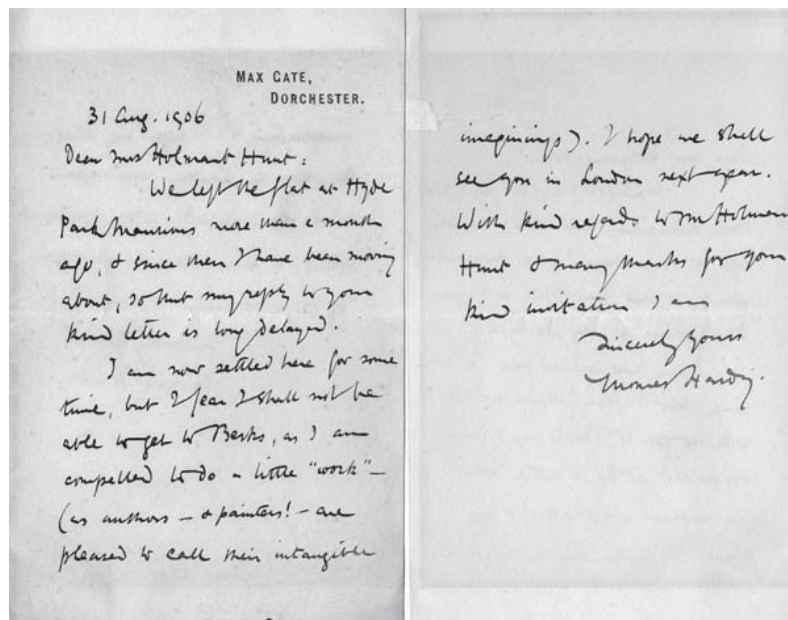 MAX GATE,
DORCHESTER.
31 Aug. 1906
Dear Mrs Holman Hunt:
We left the flat at Hyde
Park Mansions more than a month
ago, & since then I have been moving
about, so that my reply to your
kind letter is long delayed.
I am now settled here for some
time, but I fear I shall not be
able to get to Berks, as I am
compelled to do a little "work" —
(as authors — & painters! — are
pleased to call their intangible
imaginings). I hope we shall
see you in London next year.
With kind regards to Mr Holman
Hunt & many thanks for your
kind invitation I am
Sincerely yours
Thomas Hardy.